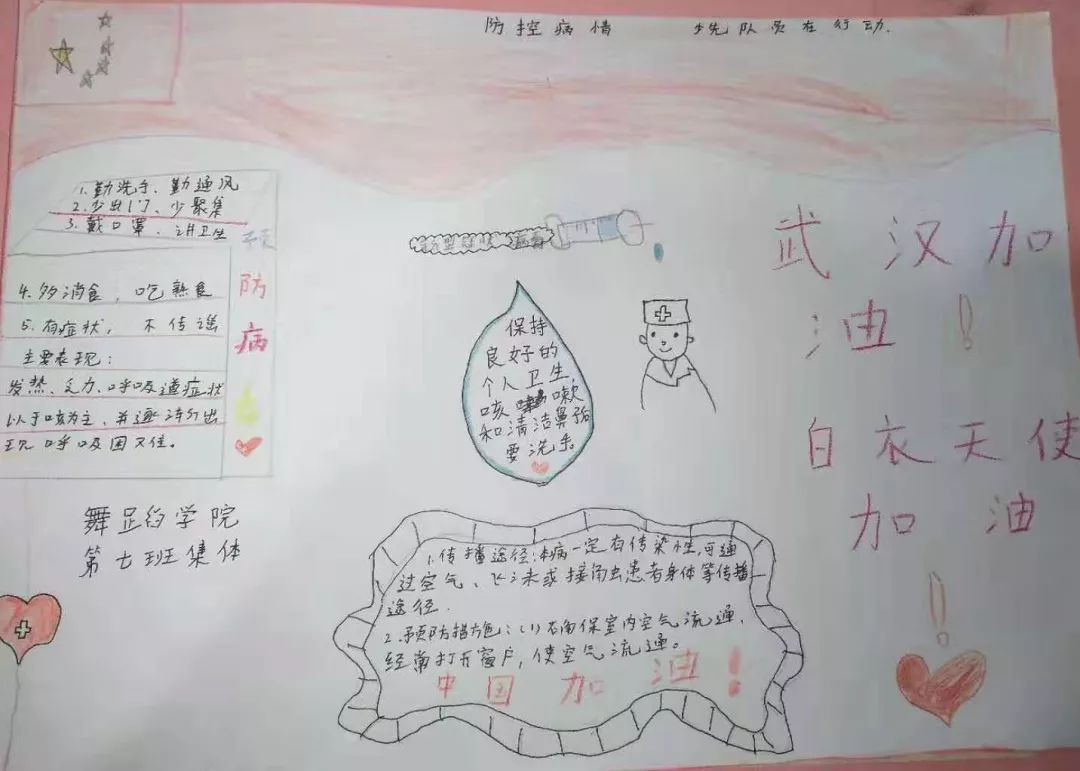 防控病情 少先队员在行动.
1.勤洗手、勤通风
2.少出门、少聚集
3.戴口罩、讲卫生
4.多消食,吃熟食
5.有症状, 不传谣
主要表现:
发热、乏力、呼吸道症状
以干咳为主、并逐渐出
现呼吸困难。
预
防
病
毒
舞蹈的学院
第七班集体
新型冠状病毒
保持
良好的
个人卫生,
咳嗽
和清洁鼻子后
要洗手。
1.传播途径:本病一定有传染性,可通
过空气、飞沫或接触患者身体等传播
途径.
2.预防措施:(1)确保室内空气流通.
经常打开窗户,使空气流通。
中国加油!
武汉加
油!
白衣天使
加油
!!